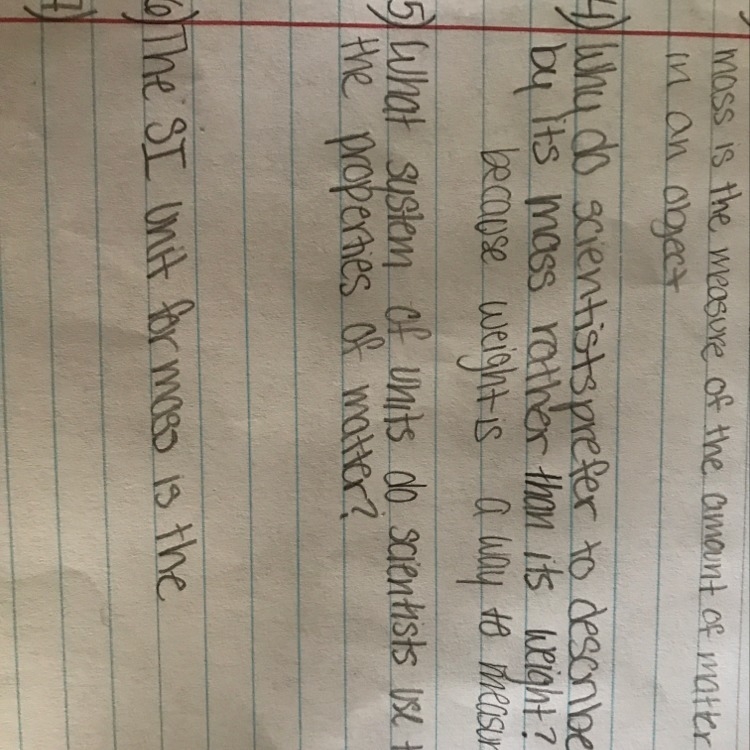 mass is the measure of the amount of matter
in an object
4) Why do scientists prefer to describe
by its mass rather than its weight?
because weight is a way to measur
5) What system of units do scientists use t
the properties of matter?
6) The SI unit for mass is the
7)